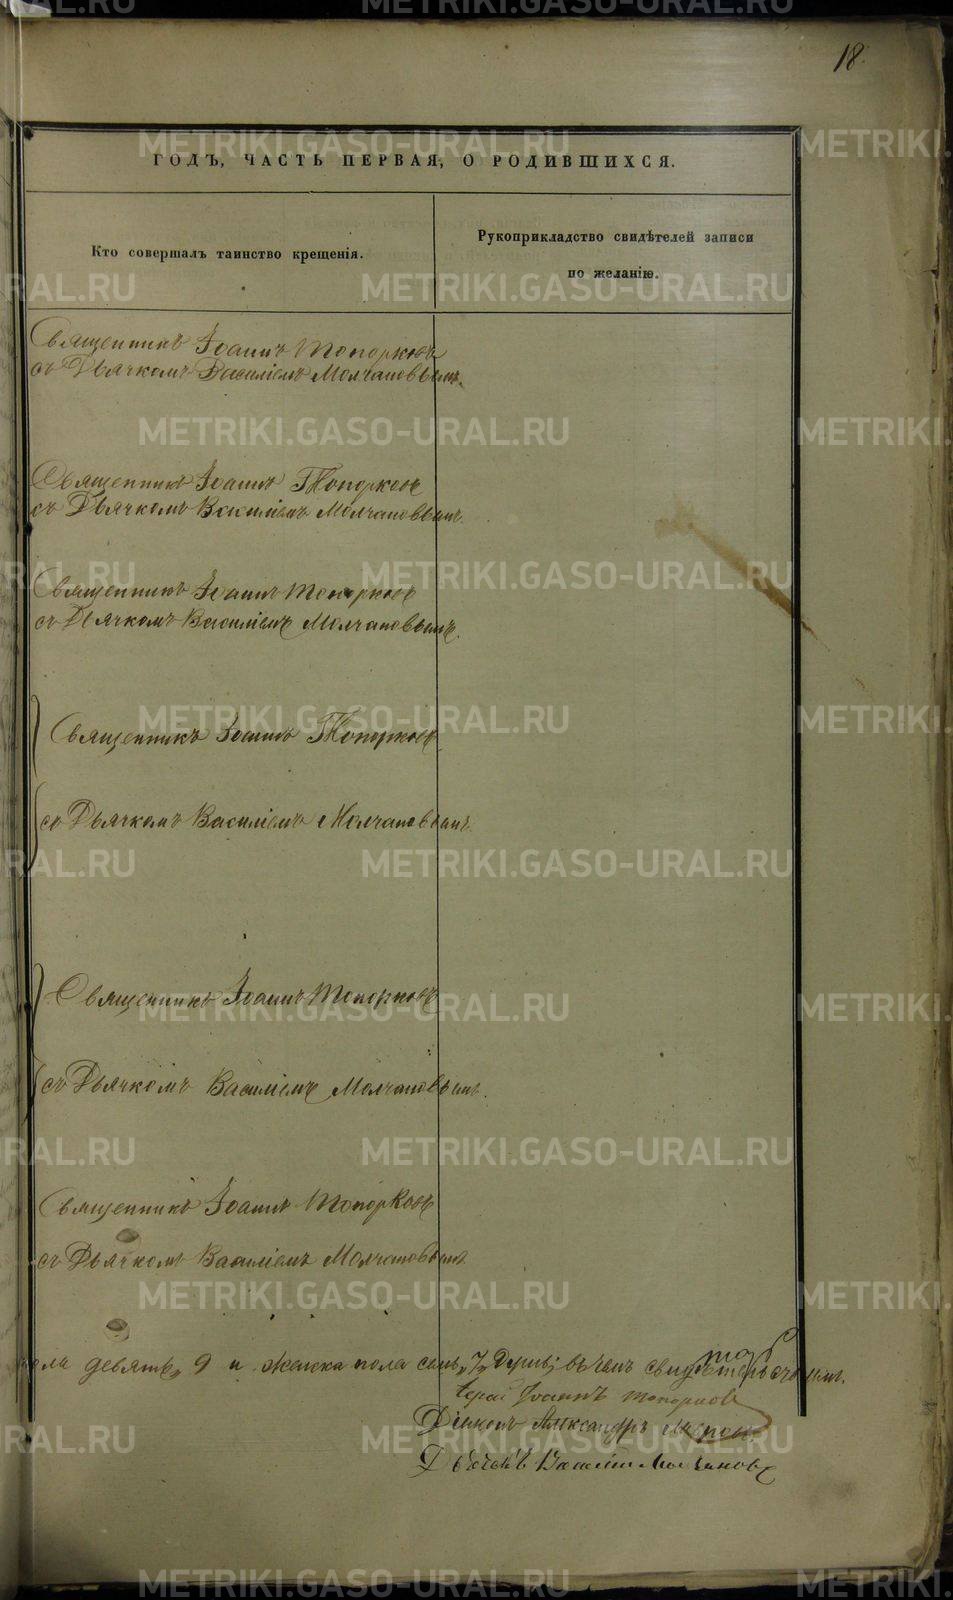 18.
ГОДЪ, ЧАСТЬ ПЕРВАЯ, О РОДИВШИХСЯ.
Кто совершалъ таинство крещенія.
Рукоприкладство свидѣтелей записи
по желанію.
Священникъ Іоаннъ Топорковъ
съ Дьячкомъ Василіемъ Молчановымъ.
Священникъ Іоаннъ Топорковъ
съ Дьячкомъ Василіемъ Молчановымъ.
Священникъ Іоаннъ Топорковъ
съ Дьячкомъ Василіемъ Молчановымъ.
Священникъ Іоаннъ Топорковъ
съ Дьячкомъ Василіемъ Молчановымъ.
Священникъ Іоаннъ Топорковъ
съ Дьячкомъ Василіемъ Молчановымъ.
Священникъ Іоаннъ Топорковъ
съ Дьячкомъ Василіемъ Молчановымъ.
пола девять, 9 и женска пола семь, 7, въ чемъ
Іерей Іоаннъ Топорковъ
Діаконъ Александръ
Дьячекъ Василій Молчановъ
METRIKI.GASO-URAL.RU